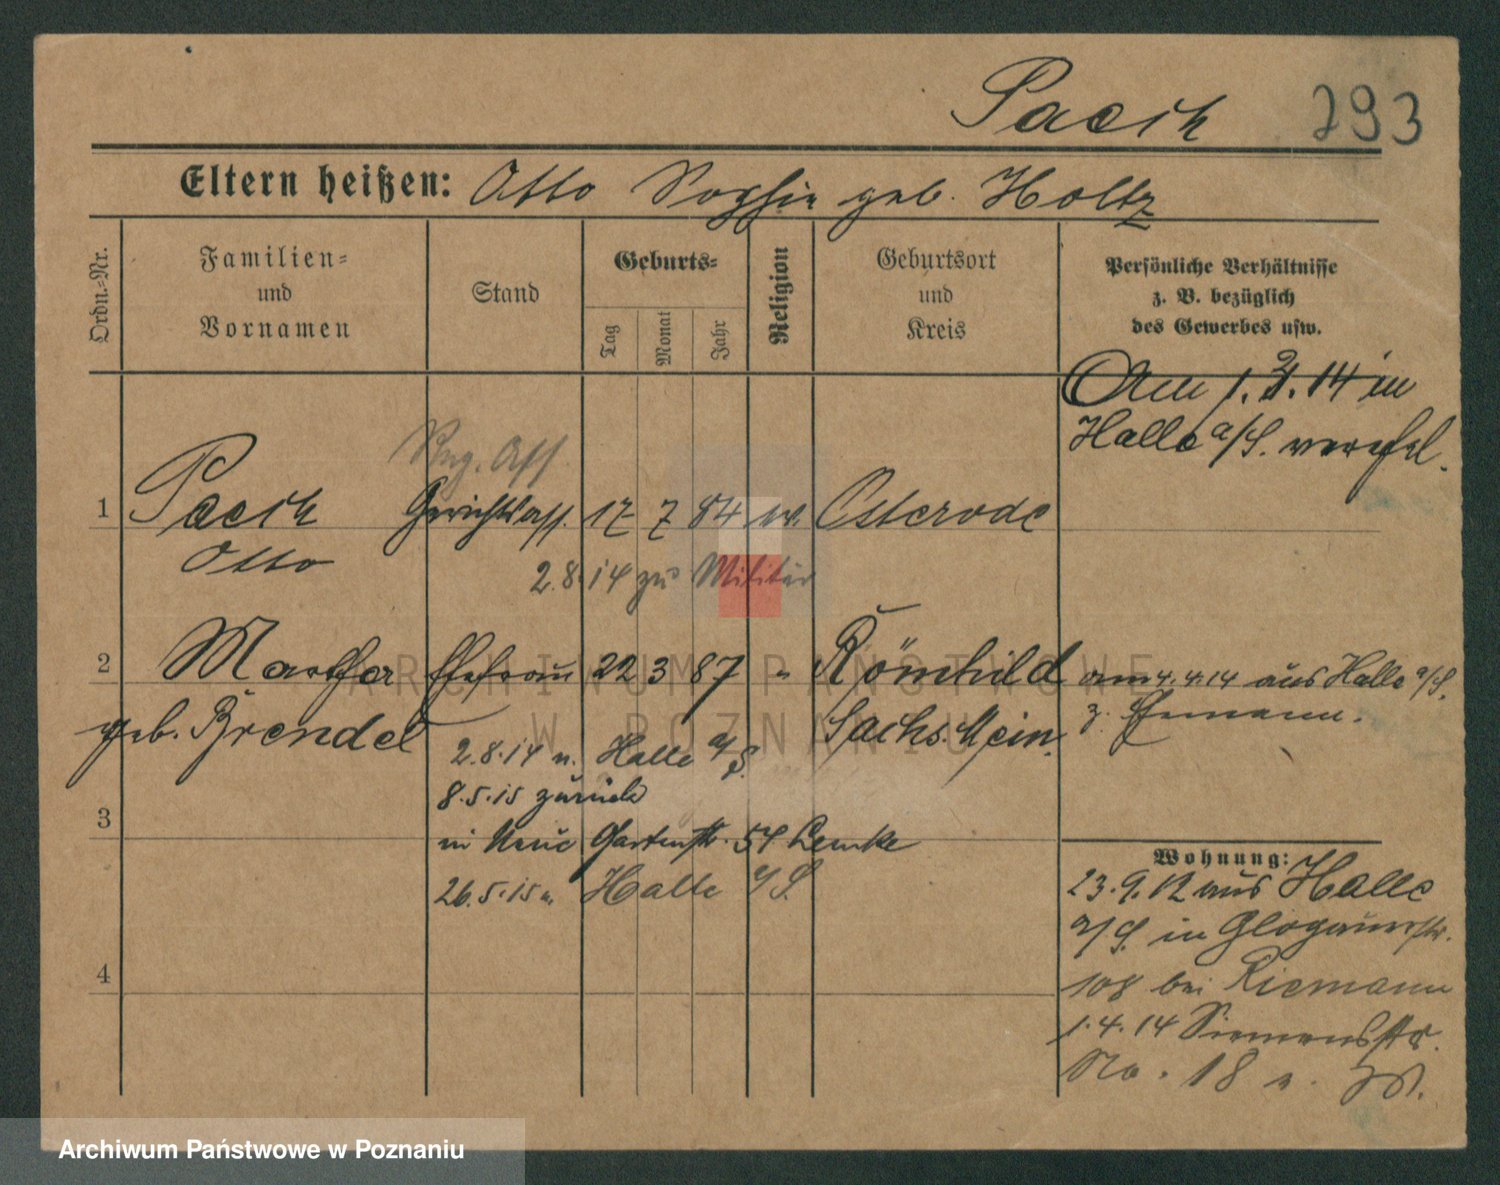 Pacik 293
Eltern heißen: Otto Sophie geb. Holtz
Ordn.-Nr.
Familien-
und
Vornamen
Stand
Geburts-
Tag
Monat
Jahr
Religion
Geburtsort
und
Kreis
Persönliche Verhältnisse
z. B. bezüglich
des Gewerbes usw.
Am 1.4.14 in
Halle a/S. verehel.
Reg. Ass
1 Pacik Gerichtsass. 17 7 84 ev. Osterode
Otto
2.8.14 zu Militär
2 Martha Ehefrau 22 3 87 " Römhild am 4.4.14 aus Halle a/S.
z. Ehemann.
geb. Brendel Sachs. Mein.
2.8.14 n. Halle a/S.
8.5.15 zurück
3 in Neue Gartenstr. 54 Lemke
26.5.15 n. Halle a/S.
4
Wohnung:
23.9.12 aus Halle
a/S. in Glogauerstr.
108 bei Riemann
1.4.14 Siemensstr.
No. 18
ARCHIWUM PAŃSTWOWE
W POZNANIU
Archiwum Państwowe w Poznaniu